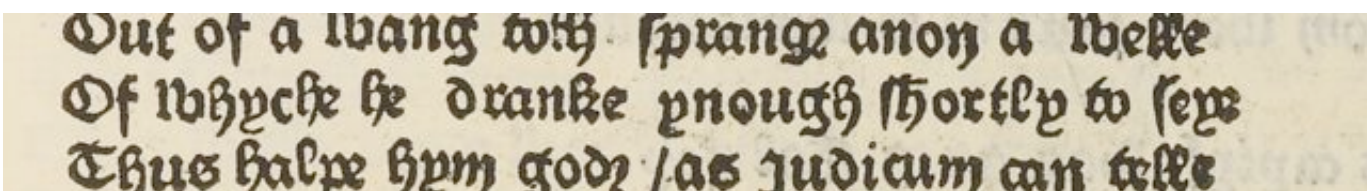 Out of a wang toth sprange anon a welle
Of whyche he dranke ynough shortly to seye
Thus halpe hym god / as Judicum can telle